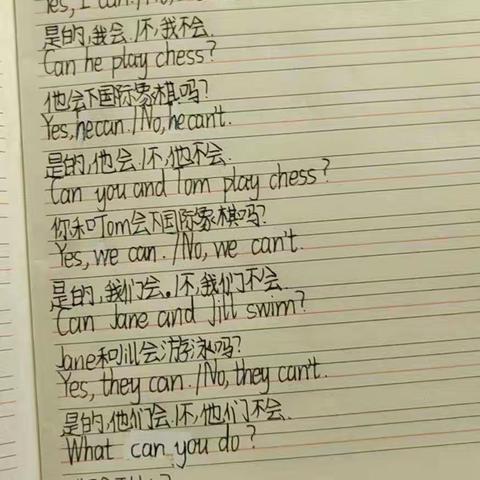 Yes, I can. / No,
是的,我会./不,我不会.
Can he play chess?
他会下国际象棋吗?
Yes, he can. / No, he can't.
是的,他会./不,他不会.
Can you and Tom play chess?
你和Tom会下国际象棋吗?
Yes, we can. / No, we can't.
是的,我们会。/不,我们不会.
Can Jane and Jill swim?
Jane和Jill会游泳吗?
Yes, they can. / No, they can't.
是的,他们会./不,他们不会.
What can you do?